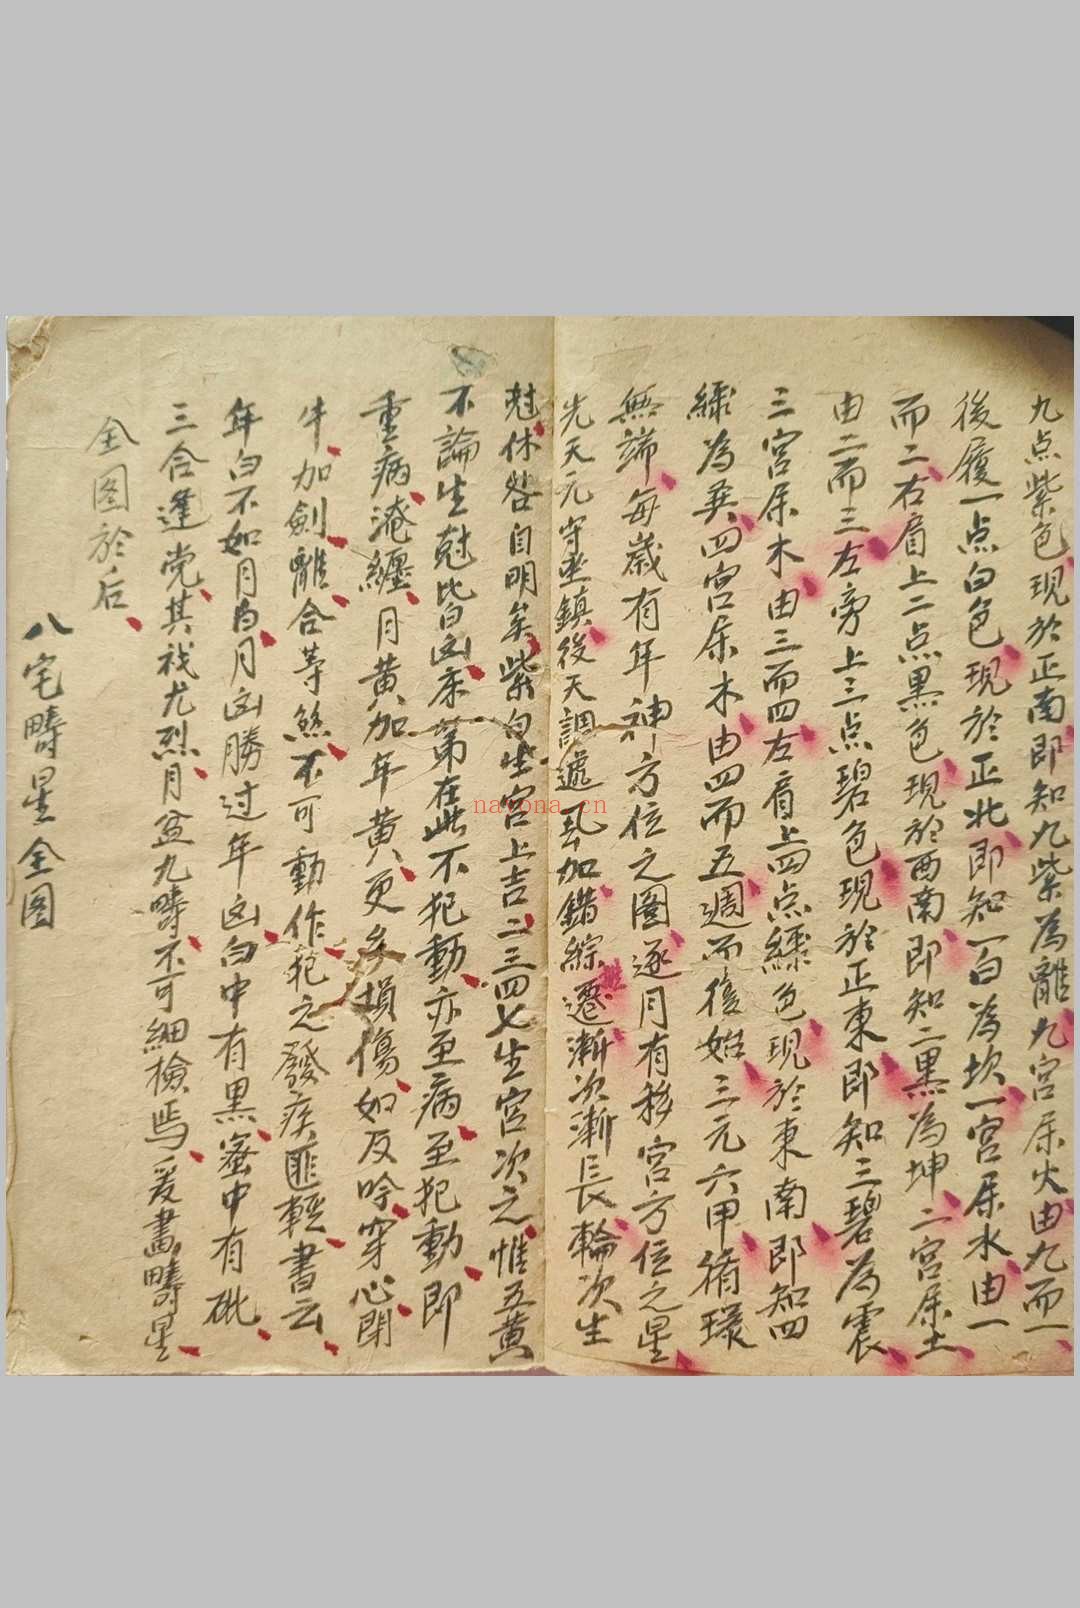 九点紫色现於正南即知九紫為離九宮属火由九而一
後履一点白色现於正北即知一白為坎一宮属水由一
而二右肩上二点黑色现於西南即知二黑為坤二宮属土
由二而三左旁上三点碧色現於正東即知三碧為震
三宮属木由三而四左肩上四点綠色現於東南即知四
綠為巽四宮属木由四而五週而復始三元六甲循環
無端每歲有年神方位之圖逐月有移宮方位之星
先天元守坐鎮後天調遞飛加錯綜遷漸次漸長輪次生
尅休咎自明矣紫白坐宮上吉二三四七生宮次之惟五黄
不論生尅皆凶床第在此不犯動亦至病至犯動即
重病淹纏月黄加年黄更多損傷如反吟穿心閉
牛加劍離合等煞不可動作犯之發疾匪輕書云
年白不如月白月凶勝过年凶白中有黑蜜中有砒
三合逢党其祸尤烈月盆九疇不可細檢焉爰畫疇星
全图於后
八宅疇星全图
nayona.cn